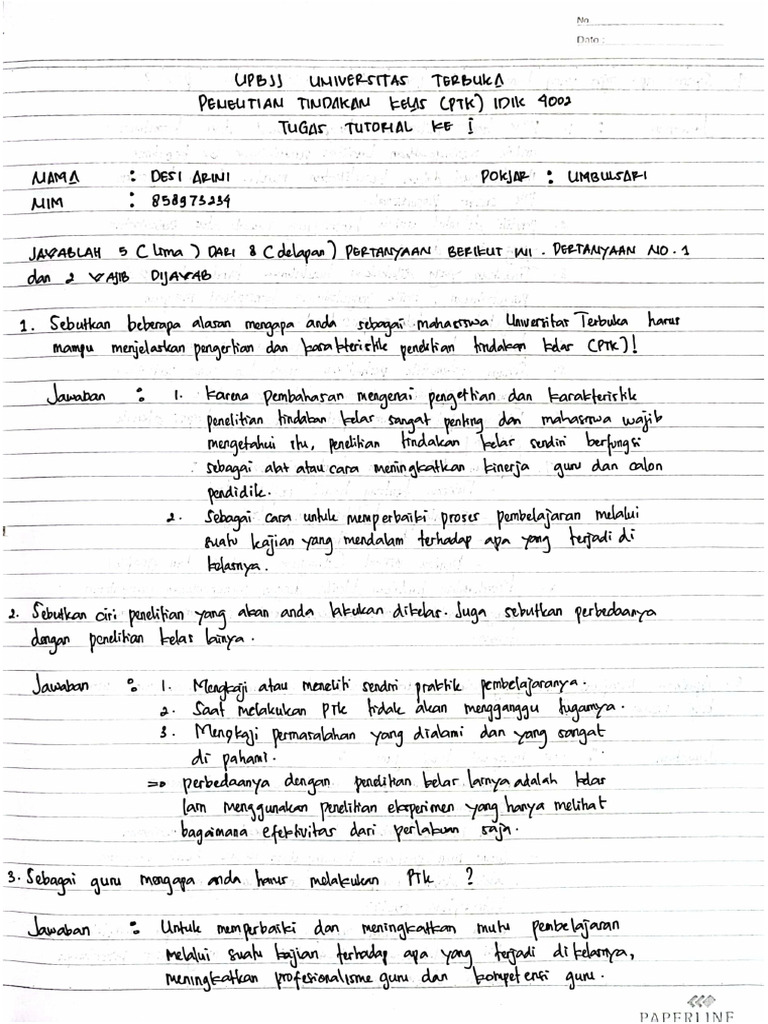 No
Date :
UPBJJ UNIVERSITAS TERBUKA
PENELITIAN TINDAKAN KELAS (PTK) IDIK 4002
TUGAS TUTORIAL KE I
NAMA : DESI ARINI POKJAR : UMBULSARI
NIM : 858973234
JAWABLAH 5 (lima) DARI 8 (delapan) PERTANYAAN BERIKUT INI. PERTANYAAN NO. 1
dan 2 WAJIB DIJAWAB
1. Sebutkan beberapa alasan mengapa anda sebagai mahasiswa Universitas Terbuka harus
mampu menjelaskan pengertian dan karakteristik penelitian tindakan kelas (PTK)!
Jawaban : 1. Karena pembahasan mengenai pengertian dan karakteristik
penelitian tindakan kelas sangat penting dan mahasiswa wajib
mengetahui itu, penelitian tindakan kelas sendiri berfungsi
sebagai alat atau cara meningkatkan kinerja guru dan calon
pendidik.
2. Sebagai cara untuk memperbaiki proses pembelajaran melalui
suatu kajian yang mendalam terhadap apa yang terjadi di
kelasnya.
2. Sebutkan ciri penelitian yang akan anda lakukan dikelas. Juga sebutkan perbedaanya
dengan penelitian kelas lainya.
Jawaban : 1. Mengkaji atau meneliti sendiri praktik pembelajaranya.
2. Saat melakukan PTK tidak akan mengganggu tugasnya.
3. Mengkaji permasalahan yang dialami dan yang sangat
di pahami.
=> perbedaanya dengan penelitian kelas lainya adalah kelas
lain menggunakan penelitian eksperimen yang hanya melihat
bagaimana efektivitas dari perlakuan saja.
3. Sebagai guru mengapa anda harus melakukan PTK ?
Jawaban : Untuk memperbaiki dan meningkatkan mutu pembelajaran
melalui suatu kajian terhadap apa yang terjadi di kelasnya,
meningkatkan profesionalisme guru dan kompetensi guru.
PAPERLINE